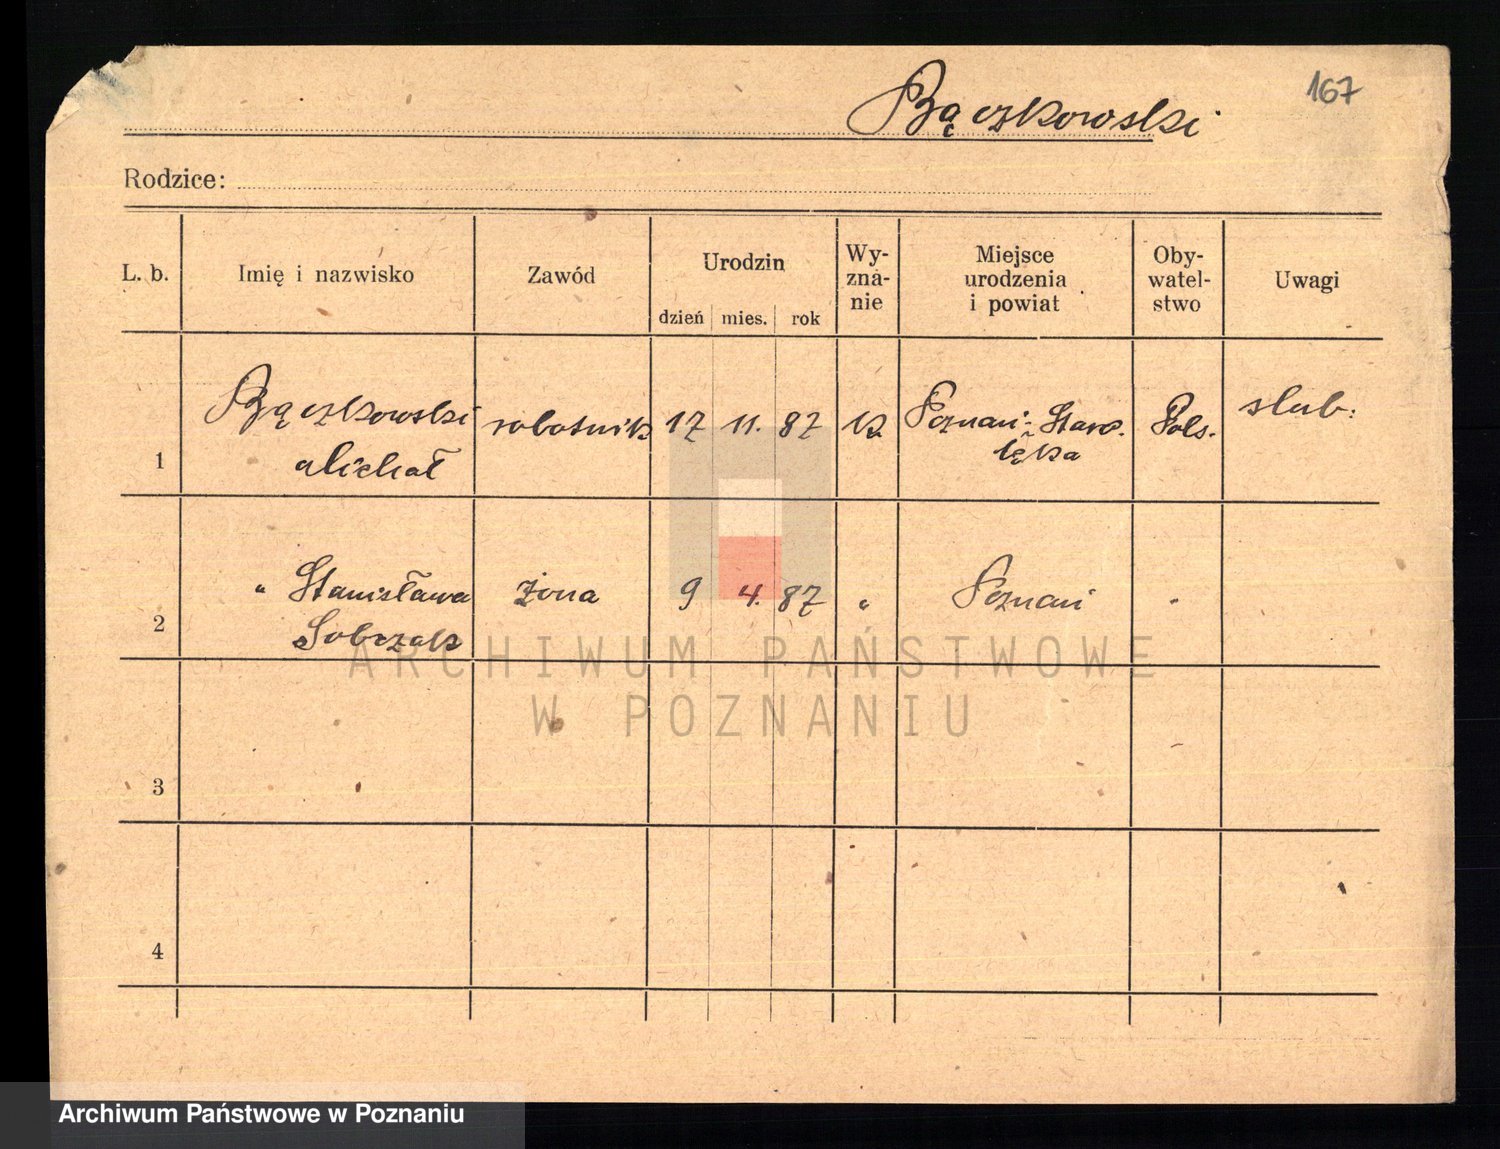 167
Bączkowski
Rodzice:
L. b. Imię i nazwisko Zawód Urodzin dzień mies. rok Wy-
zna-
nie Miejsce
urodzenia
i powiat Oby-
watel-
stwo Uwagi
1 Bączkowski
Michał robotnik 17 11. 87 k Poznań-Staro-
łęka Pols. slub.
2 " Stanisława
Sobczak żona 9 4. 87 " Poznań "
3
4
ARCHIWUM PAŃSTWOWE
W POZNANIU
Archiwum Państwowe w Poznaniu